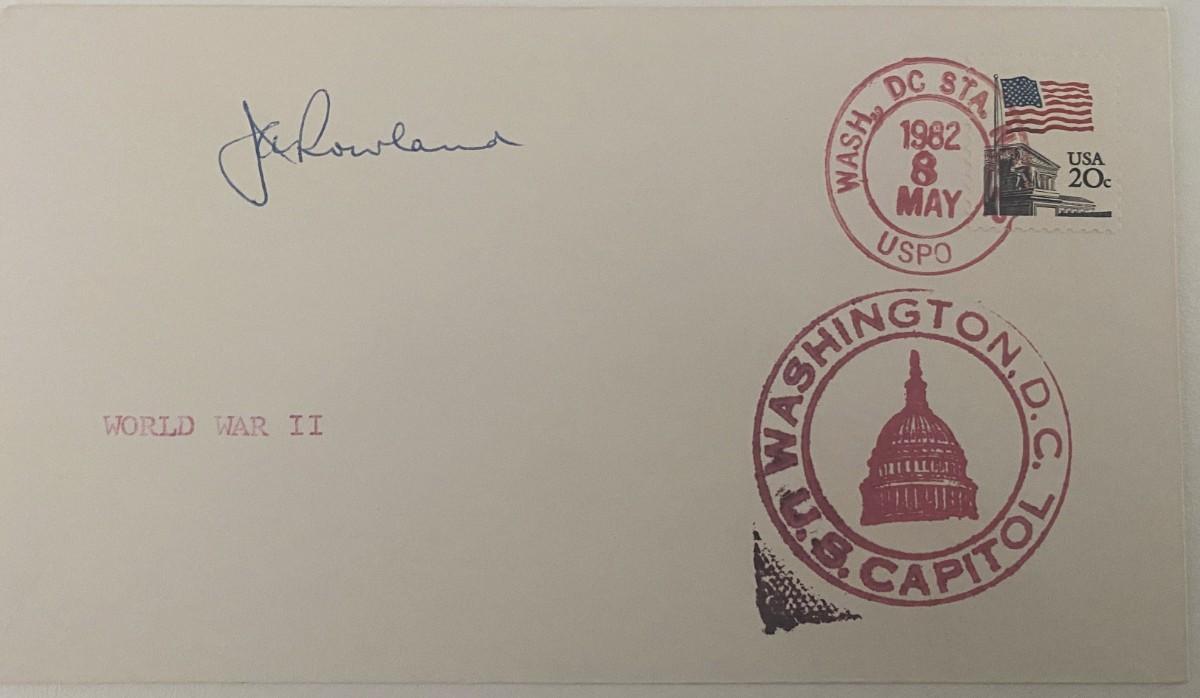 Rowland
WASH., DC STA.
1982
8
MAY
USPO
USA
20c
WORLD WAR II
WASHINGTON, D.C.
U.S. CAPITOL